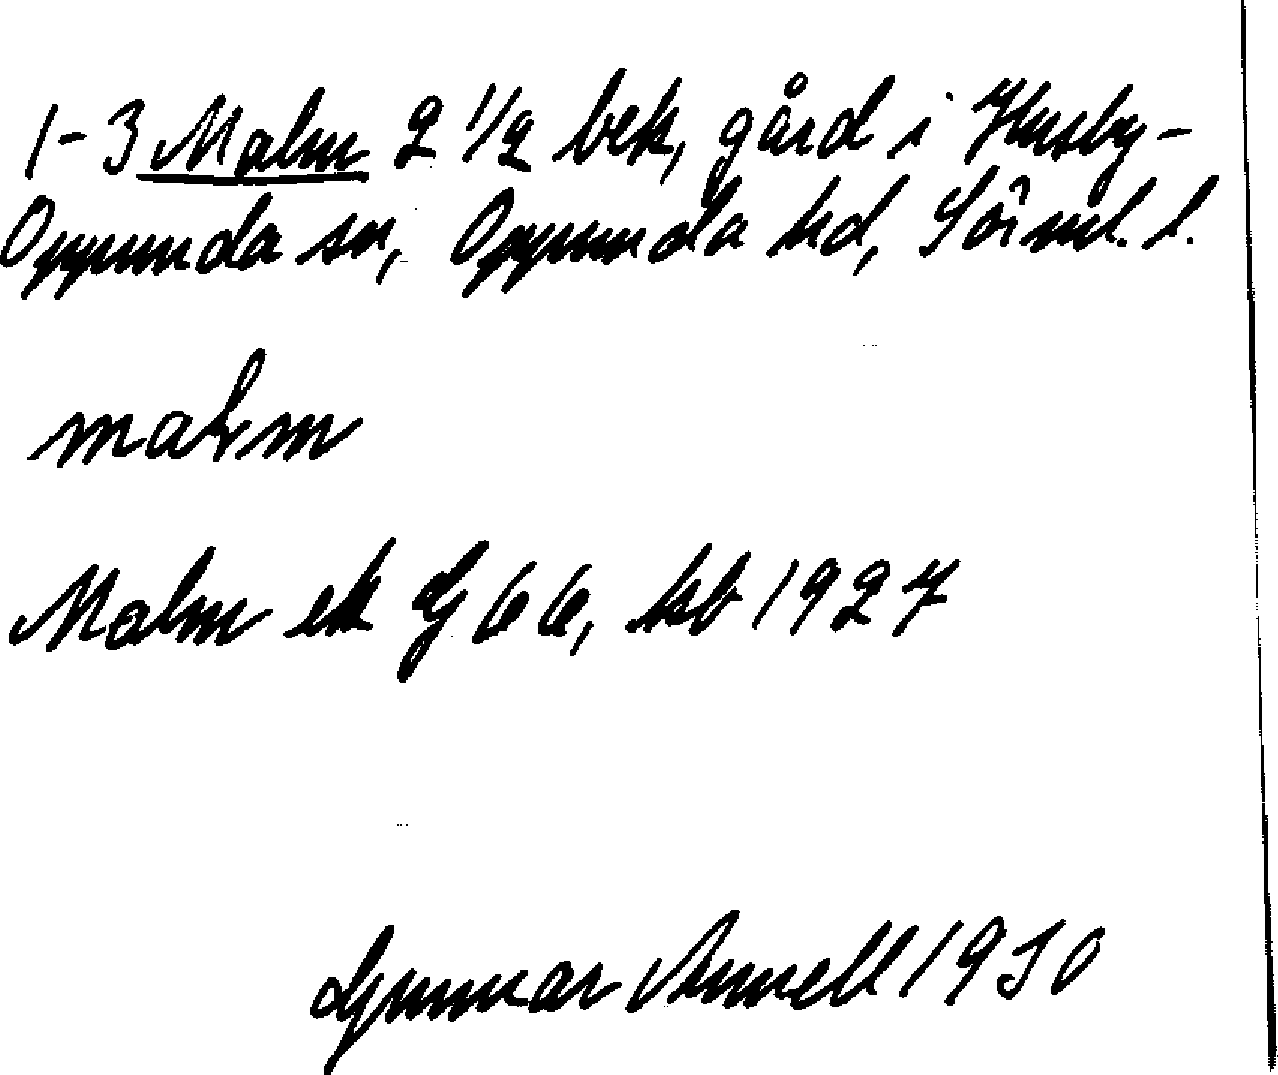 1-3 Malm 2 1/2 bek, gård i Husby-
Oppunda sn, Oppunda hd, Sörml. l.
malm
Malm ek 66, kb 1927
Gunnar Annell 1930